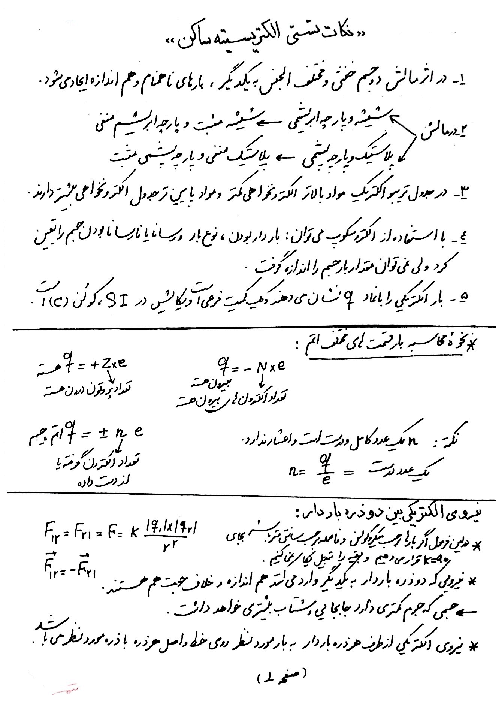 «نکات تستی الکتریسیته ساکن»
۱- در اثر مالش دو جسم خنثی و مختلف الجنس به یکدیگر، بارهای ناهمنام و هم اندازه ایجاد می‌شود.
۲- در مالش شیشه و پارچه ابریشمی ← شیشه مثبت و پارچه ابریشم منفی
پلاستیک و پارچه پشمی ← پلاستیک منفی و پارچه پشمی مثبت
۳- در جدول تریبوالکتریک مواد بالاتر الکترونخواهی کمتر و مواد پایین تر جدول الکترونخواهی بیشتر دارند.
۴- با استفاده از الکتروسکوپ می‌توان: باردار بودن، نوع بار و رسانا یا نارسانا بودن جسم را تعیین
کرد ولی نمی‌توان مقدار بار جسم را اندازه گرفت.
۵- بار الکتریکی را با نماد q نشان می‌دهند و یک کمیت فرعی است و یکایش در SI، کولن (C) است.
* نحوهٔ محاسبه بار قسمت های مختلف اتم:
q = +Z×e هسته
تعداد پروتون درون هسته
q = -N×e بیرون هسته
تعداد الکترون های بیرون هسته
q = ± n e اتم و جسم
تعداد الکترون گرفته یا
از دست داده
نکته: n یک عدد کامل و درست است و اعشار ندارد.
n = q/e = یک عدد درست
نیروی الکتریکی بین دو ذره باردار:
F₁₂ = F₂₁ = F = k |q₁||q₂| / r²
F⃗₁₂ = -F⃗₂₁
* در این فرمول اگر بارها بر حسب میکروکولن و فاصله بر حسب سانتی متر باشد بجای
k=۹۰ قرار می‌دهیم و بقیه را تبدیل یکا نمی‌کنیم.
* نیرویی که دو ذره باردار به یکدیگر وارد می‌کنند هم اندازه و خلاف جهت هم هستند.
← جسمی که جرم کمتری دارد جابجایی و شتاب بیشتری خواهد داشت.
* نیروی الکتریکی از طرف هر ذره باردار به بار مورد نظر روی خط واصل هر ذره با ذره مورد نظر می باشد.
(صفحه ۱)